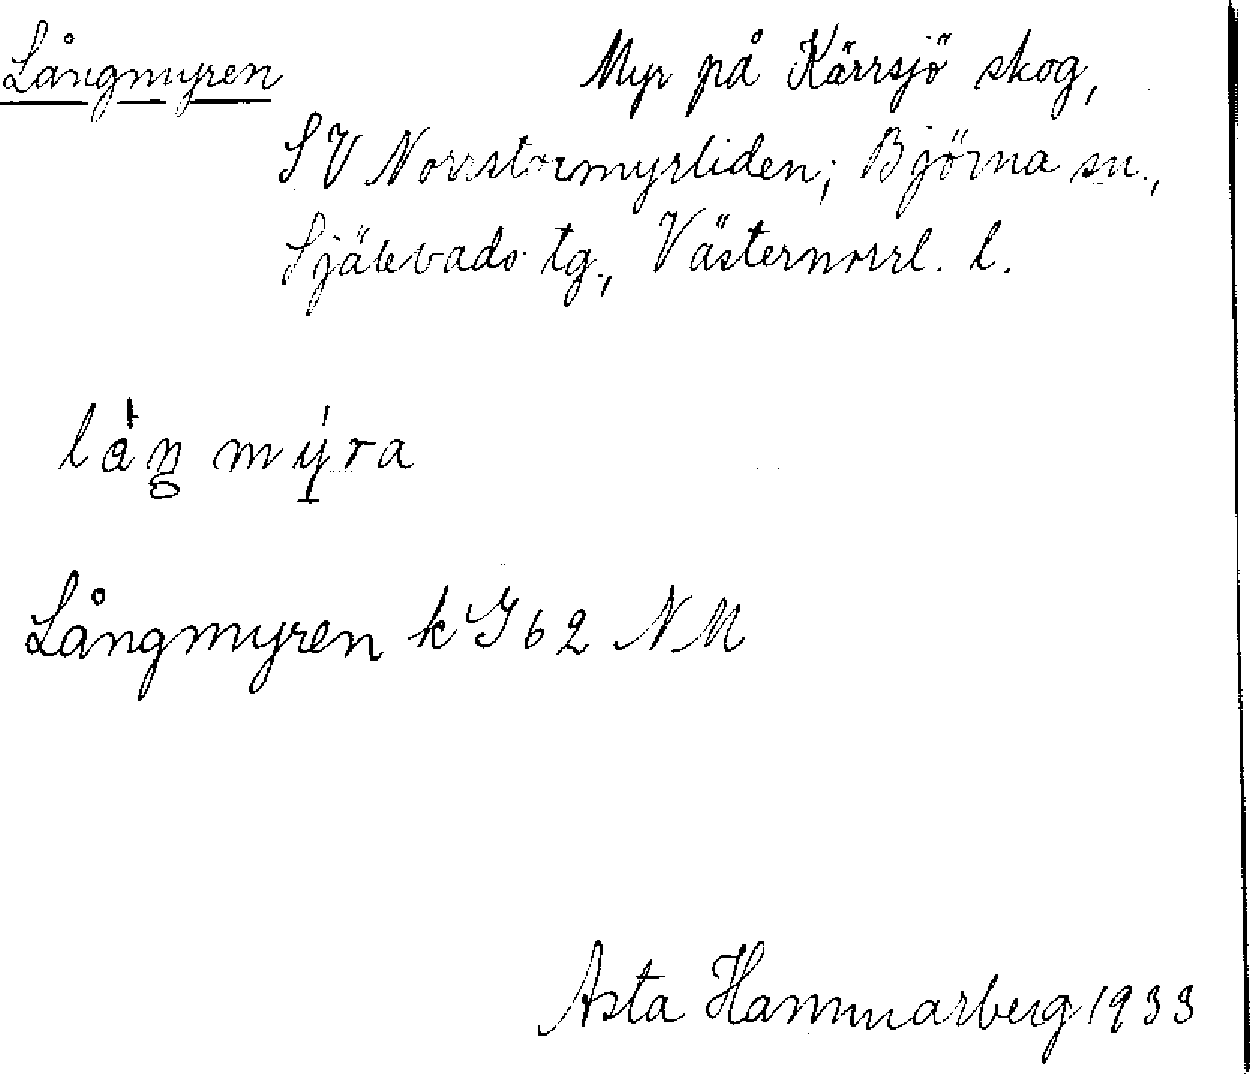 Långmyren Myr på Kärrsjö skog,
SV Norrstormyrliden; Björna sn.,
Själevads tg., Västernorrl. l.
låŋ mýra
Långmyren k J62 NM
Asta Hammarberg 1933